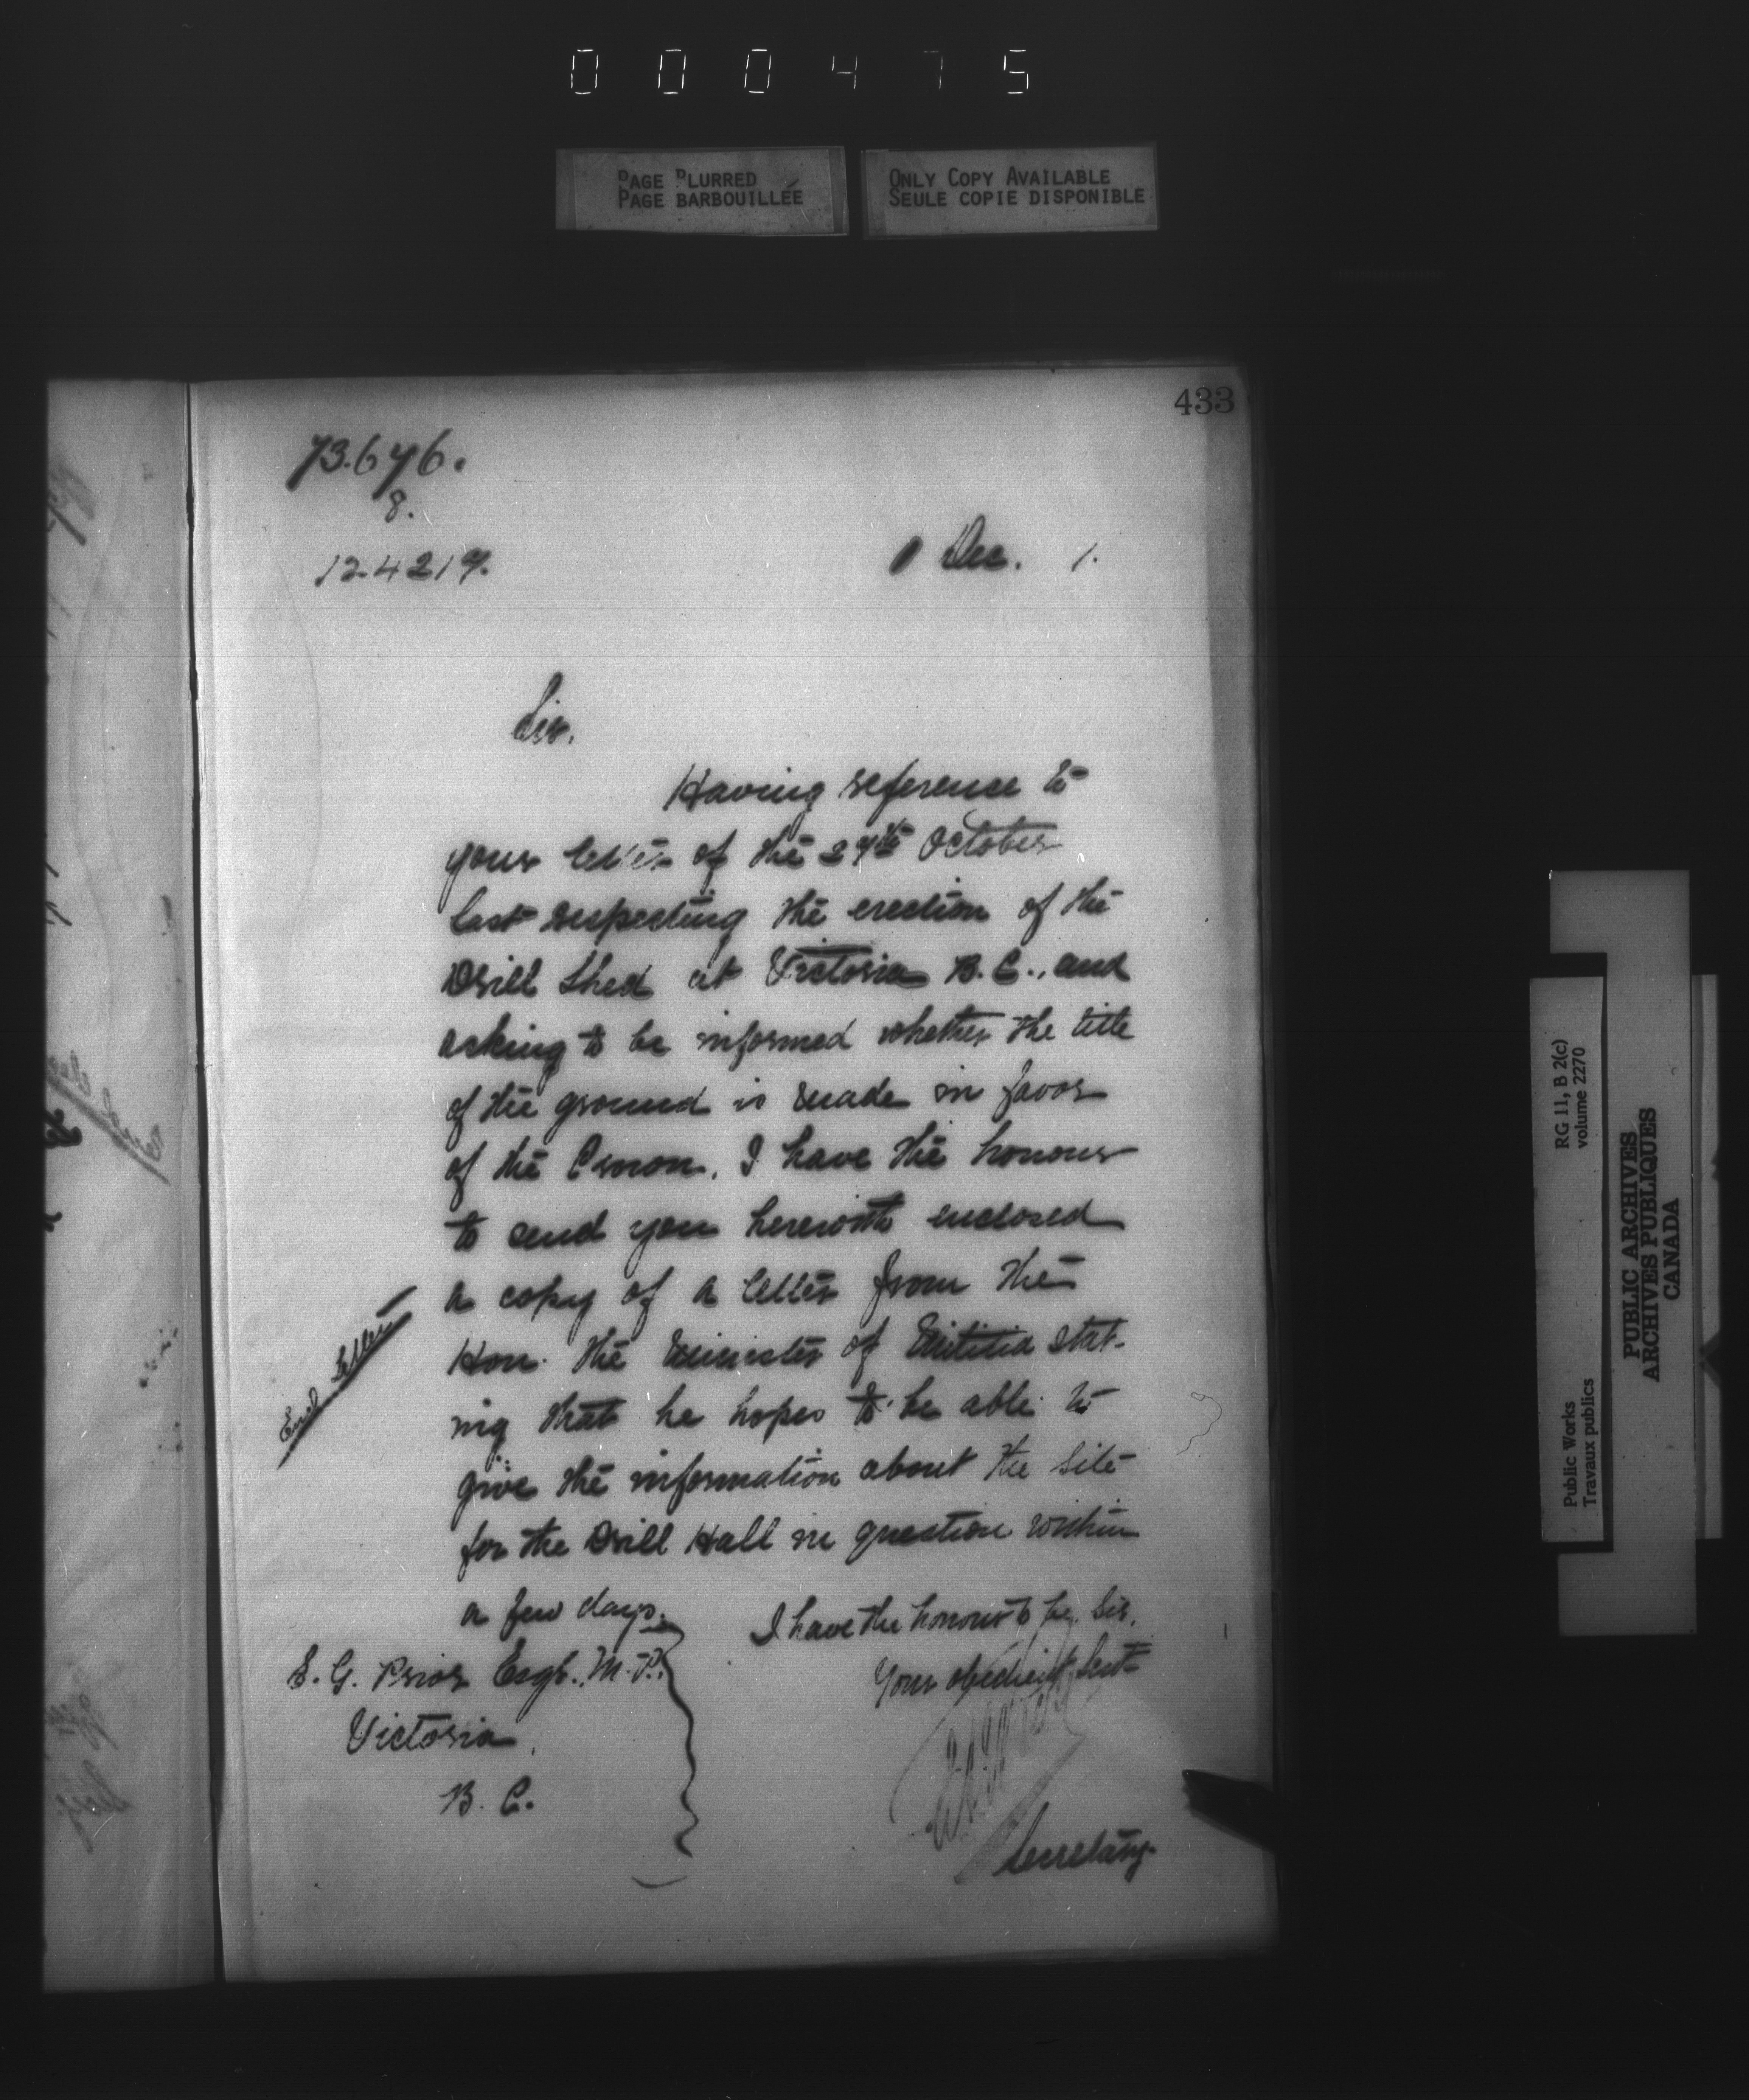 0 0 0 4 7 5
PAGE BLURRED
PAGE BARBOUILLÉE
ONLY COPY AVAILABLE
SEULE COPIE DISPONIBLE
433
73.676.
8.
124219.
1 Dec. 1.
Sir,
Having reference to
your letter of the 27th October
last respecting the erection of the
Drill Shed at Victoria B.C., and
asking to be informed whether the title
of the ground is made in favor
of the Crown, I have the honour
to send you herewith enclosed
a copy of a letter from the
Hon. the Minister of Militia stat-
ing that he hopes to be able to
give the information about the site
for the Drill Hall in question within
a few days.
Encl letter
I have the honour to be, Sir,
Your obedient Servt
Secretary.
E. G. Prior Esqr. M.P.
Victoria
B. C.
RG 11, B 2(c)
volume 2270
Public Works
Travaux publics
PUBLIC ARCHIVES
ARCHIVES PUBLIQUES
CANADA